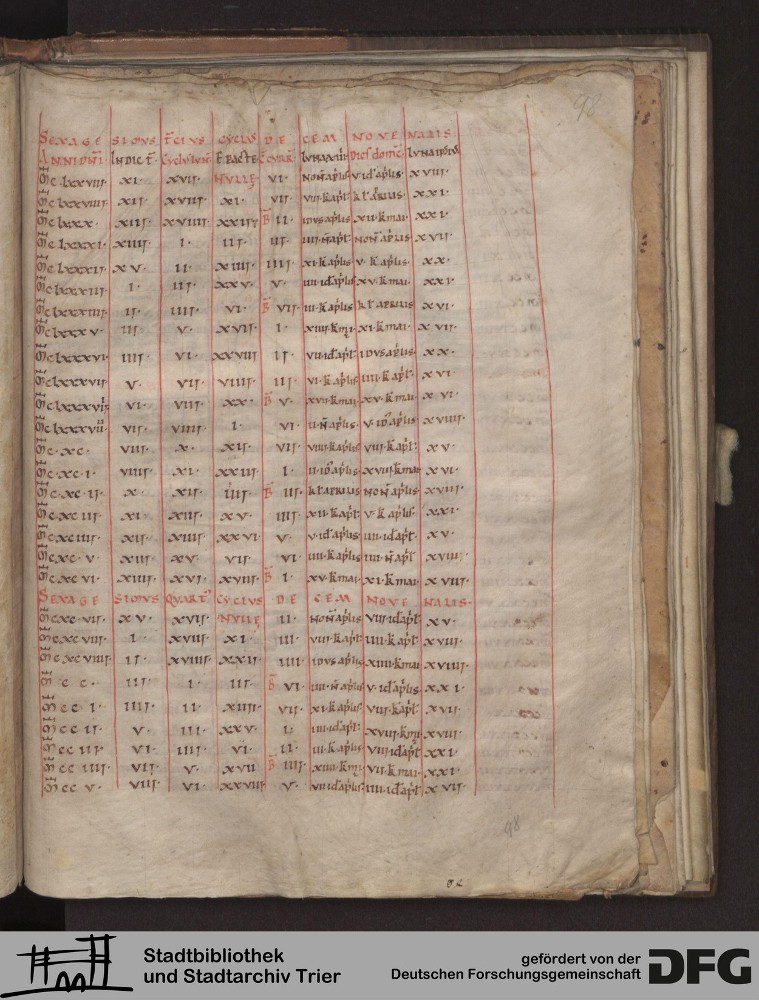 98
SEXAGE SIMUS T̄CIUS CYCLUS DE CEM NOVE NALIS
ANNI DNI INDICT̄ CYCLUS LUN̄ EPACTE C̄CURR̄ LUNA XIIII DIES DOMĪC̄ LUNA IPSIUS
M̄C lxxviii XI· XVI· NULLE VI· NON̄ AP̄LIS V·ID AP̄LIS· XVIII·
M̄C lxxviiii XII· XVIII· XI· VII· VIII·K APL̄ KL̄ APRILIS· XXI·
M̄C lxxx· XIII· XVIIII· XXII· B̄ II· IDUS AP̄LIS XII·K MAI· XXI·
M̄C lxxxi· XIIII· I· III· III· IIII·N̄ APL̄· NON̄ AP̄LIS XVII·
M̄C lxxxii· XV· II· XIIII· IIII· XI·K AP̄LIS V·K AP̄LIS· XX·
M̄C lxxxiii· I· III· XXV· V· IIII·ID AP̄LIS XV·K MAI· XXI·
M̄C lxxxiiii· II· IIII· VI· B̄ VII· III·K AP̄LIS KL̄ APRILIS XVI·
M̄C lxxxv· III· V· XVII· I· XIIII·K M̄I· XI·K MAI· XVII·
M̄C lxxxvi· IIII· VI· XXVIII· II· VII·ID APL̄· IDUS AP̄LIS XX·
M̄C lxxxvii· V· VII· VIIII· III· VI·K AP̄LIS IIII·K APL̄· XVI·
M̄C lxxxvii· VI· VIII· XX· B̄ V· XVII·K MAI· XV·K MAI· XVI·
M̄C lxxxvii· VII· VIIII· I· VI· II·N̄ AP̄LIS· V·ID AP̄LIS· XVIIII·
M̄C·XC· VIII· X· XII· VII· VIIII·K AP̄LIS VIII·K APL̄· XV·
M̄C·XC·I· VIIII· XI· XXIII· I· II·ID AP̄LIS XVIII·K MAI XVI·
M̄C·XC·II· X· XII· IIII· B̄ III· KL̄ APRILIS NON̄ AP̄LIS XVIII·
M̄C·XC·III· XI· XIII· XV· IIII· XII·K APL̄· V·K AP̄LIS· XXI·
M̄C·XC·IIII· XII· XIIII· XXVI· V· V·ID AP̄LIS· IIII·ID APL̄· XV·
M̄C·XC·V· XIII· XV· VII· VI· IIII·K AP̄LIS IIII·N̄ APL̄ XVIII·
M̄C·XC·VI· XIIII· XVI· XVIII· B̄ I· XV·K MAI· XI·K MAI· XVIII·
SEXAGE SIMUS QUART̄ CYCLUS DE CEM NOVE NALIS·
M̄C·XC·VII· XV· XVII· NULLE II· NON̄ AP̄LIS VIII·ID APL̄· XV·
M̄C·XC·VIII· I· XVIII· XI· III· VIII·K APL̄· IIII·K APL̄· XVIII·
M̄C·XC·VIIII· II· XVIIII· XXII· IIII· IDUS AP̄LIS XIIII·K MAI· XVIIII·
M̄ C C· III· I· III· B̄ VI· IIII·N̄ AP̄LIS V·ID AP̄LIS XXI·
M̄ CC I· IIII· II· XIIII· VII· XI·K AP̄LIS VIII·K APL̄· XVII·
M̄ CC II· V· III· XXV· I· IIII·ID APL̄· XVIII·K M̄I XVIII·
M̄ CC III· VI· IIII· VI· II· III·K AP̄LIS VIII·ID APL̄· XXI·
M̄ CC IIII· VII· V· XVII B̄ IIII· XIIII·K M̄I· VII·K MAI· XXI·
M̄ CC V· VIII· VI· XXVIII V· VII·ID AP̄LIS IIII·ID APL̄· XVII·
98
Stadtbibliothek
und Stadtarchiv Trier
gefördert von der
Deutschen Forschungsgemeinschaft
DFG